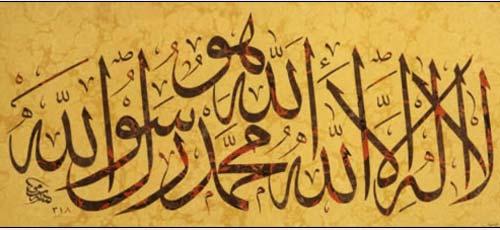 لا اله الا الله
الله هو
محمد رسول الله
٣١٨